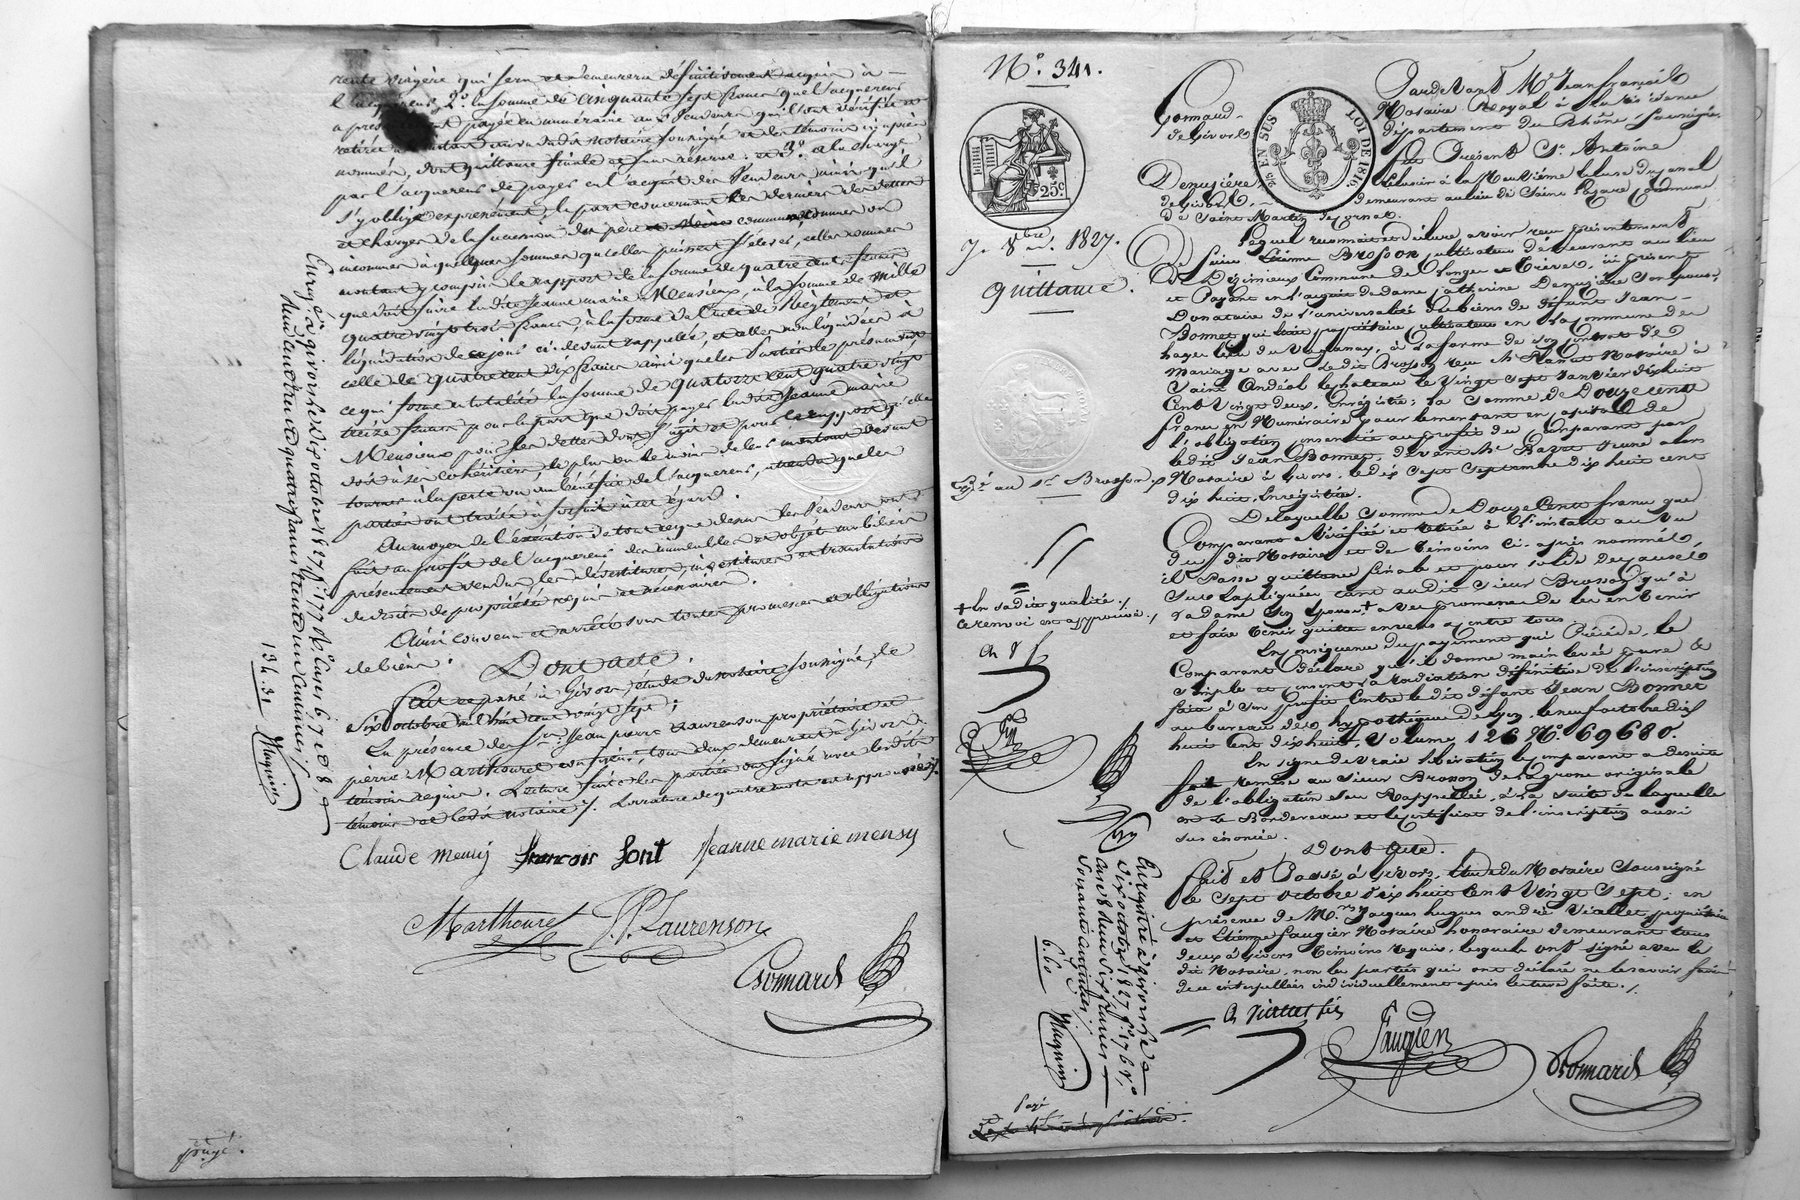 rente viagère qui sera et demeurera définitivement acquise à
l'acquéreur. 2.º la somme de cinquante sept francs que l'acquéreur
a présentement payée en numéraire aux vendeurs qui l'ont vérifiée et
retirée à l'instant au vu du notaire soussigné et des témoins ci après
nommés, dont quittance finale et sans réserve. et 3.º à la charge
par l'acquéreur de payer en l'acquit des vendeurs ainsi qu'il
s'y oblige expressément, la part concernant les derniers des dettes
et charges de la succession des père et mère communs, connues ou
inconnues à quelques sommes qu'elles puissent s'élever, celles connues
montant y compris le rapport de la somme de quatre cents francs
que doit faire la dite Jeanne marie Mensieux, à la somme de mille
quatre vingt trois francs, à la forme de l'acte de Règlement et
liquidation de ce jour ci-devant rappelé, et celles non liquidées à
celle de quatre cent dix francs ainsi que les parties le présument
ce qui forme en totalité la somme de quatorze cent quatre vingt
treize francs pour la part que doit payer la dite Jeanne marie
Mensieux pour les dettes dont s'agit et pour le rapport qu'elle
doit à ses cohéritiers, le plus ou le moins de leur montant devant
tourner à la perte ou au bénéfice de l'acquéreur, attendu que les
parties ont traité à forfait à cet égard.
Au moyen de l'exécution de tout ce que dessus les vendeurs ont
fait au profit de l'acquéreur des immeubles et objets mobiliers
présentement vendus, les dévestitures, investitures et translations
de droits de propriété requises et nécessaires.
Ainsi convenu et arrêté sous toutes promesses et obligations
de biens.
Dont acte.
Fait et passé à Givors, étude du notaire soussigné, le
six octobre mil huit cent vingt sept;
En présence de srs. Jean pierre Laurenson propriétaire et
pierre Marthouret confiseur, tous deux demeurant à Givors
témoins requis. Lecture faite les parties ont signé avec les dits
témoins et le dit notaire ./. La rature de quatre mots est approuvée ./.
Claude mensy francois font Jeanne marie mensy
Marthouret J. P. Laurenson
Bonnard
Enreg.é à givors le dix octobre 1827 f.º 177
un d'and trente quatre francs trente un centimes ./.
134.31
payé.
N.º 341.
7. 8bre. 1827.
Quittance.
Exp.é au S.r Brosson
+ en sa dite qualité ./.
ce renvoi est approuvé. /.
25c
25 EN SUS
LOI DE 1816
de Givors
Pardevant M.e Jean françois
Notaire Royal à la résidence
département du Rhône, soussigné,
fut Présent S.r Antoine
Denuzière,
éclusier à la Neuvième écluse du canal
de Givors, demeurant au lieu de Saint Lazare Commune
de Saint Martin de Cornas.
Lequel reconnait et déclare avoir reçu présentement
de Sieur Etienne Brosson, cultivateur demeurant au lieu
de Dégimieux Commune de Longes et Trèves, ici présent
et Payant en l'acquit de dame Catherine Denuzière son épouse,
Donataire de l'universalité des biens de défunt Jean
Bonnet qui était propriétaire cultivateur en la commune des
hayes lieu du Vaganay, à la forme de son contrat de
mariage avec le dit Brosson reçu M.e Planut Notaire à
Saint Andéol le chateau le vingt sept Janvier dix huit
Cent Vingt deux, enregistré; la somme de Douze cents
francs en Numéraire pour le montant en capital de
l'obligation consentie au profit du Comparant par
le dit Jean Bonnet, devant M.e Bazot jeune alors
Notaire à Givors, le dix sept Septembre dix huit cent
dix huit, Enregistrée.
De laquelle somme de Douze Cents francs que
Comparant a Vérifiée et retirée à l'instant au vu
du dit Notaire et de témoins ci-après nommés,
il passe quittance finale et pour solde des causes
sus expliquées tant au dit Sieur Brosson qu'à
la dame son épouse + avec promesse de les en tenir
et faire tenir quitte envers et contre tous.
En conséquence du payement qui Précède, le
Comparant déclare qu'il donne main levée pure &
simple et consent la radiation définitive de l'inscription
faite à son profit contre le dit défunt Jean Bonnet
au bureau des hypothèques de Lyon, le neuf octobre dix
huit cent dix huit, volume 126 N.º 69680.
En signe de vraie libération le comparant a de suite
fait Remise au Sieur Brosson de la grosse originale
de l'obligation sus Rappellée, à la suite de laquelle
est le Bordereau et le certificat de l'inscription aussi
sus énoncée.
Dont Acte.
Fait et Passé à Givors, étude du Notaire soussigné
le sept octobre dix huit cent Vingt sept; en
présence de M.rs Jacques hugues andré Viallet propriétaire
et Etienne Faugier Notaire honoraire demeurant tous
deux à Givors témoins requis, lesquels ont signé avec le
dit Notaire, non les parties qui ont déclaré ne le savoir faire
de ce interpellées individuellement après lecture faite. /.
A Viallet fils Faugier Bonnard
Enregistré à givors le
dix octobre 1827, f.º 176 v.º
case 8 reçu six francs
soixante centimes ./.
6.60
Payé